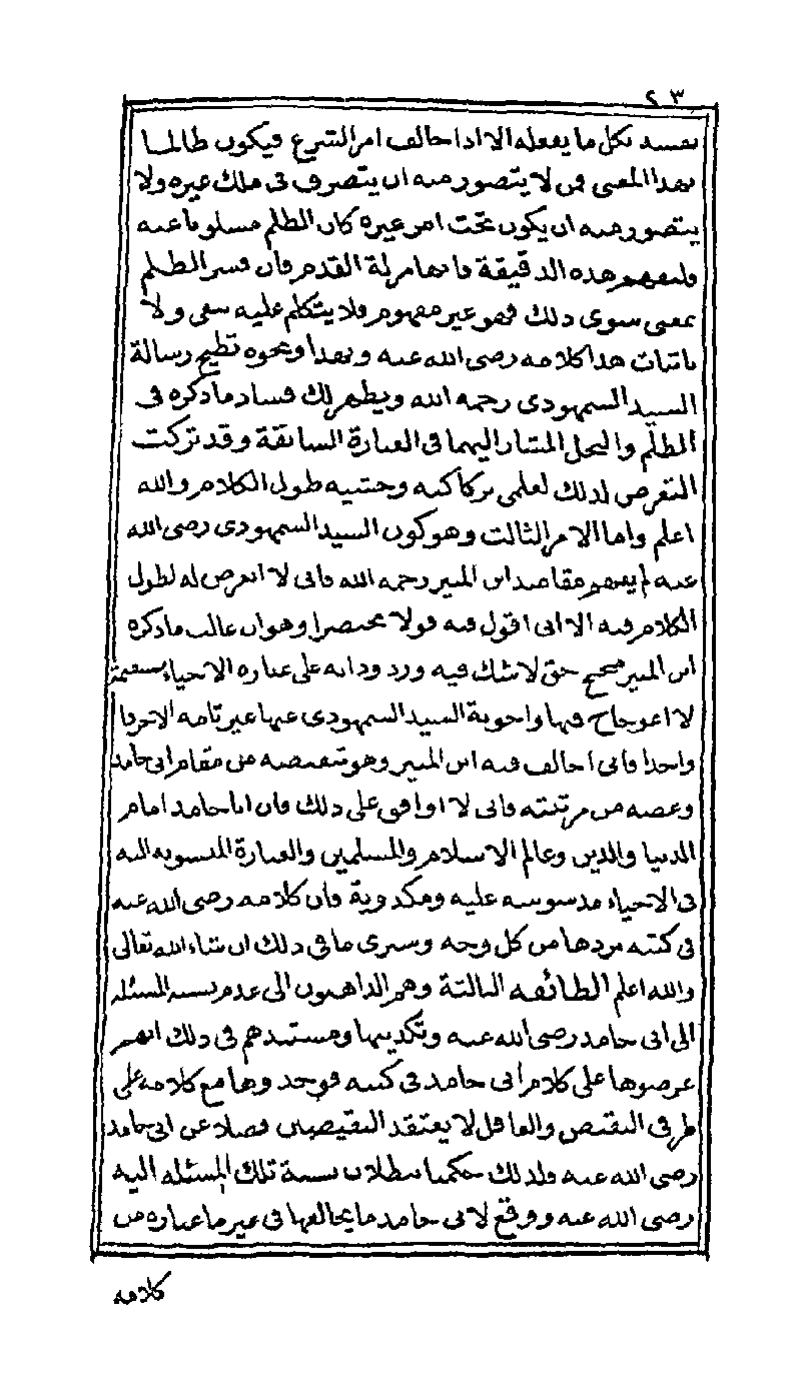 ٢٣
نفسه بكل ما يفعله الا اذا خالف امر الشرع فيكون ظالما
بهذا المعنى فمن لا يتصور منه ان يتصرف فى ملك غيره ولا
يتصور منه ان يكون تحت امر غيره كان الظلم مسلوبا عنه
فلتفهم هذه الدقيقة فانها مزلة القدم فان فسر الظلم
بمعنى سوى ذلك فهو غير مفهوم فلا يتكلم عليه بنفى ولا
باثبات هذا كلامه رضى الله عنه وبهذا ونحوه تطيح رسالة
السيد السمهودى رحمه الله ويظهر لك فساد ما ذكره فى
الظلم والبخل المشار اليهما فى العبارة السابقة وقد تركت
التعرض لذلك لعلمى بركاكته وخشية طول الكلام والله
اعلم واما الامر الثالث وهو كون السيد السمهودى رضى الله
عنه لم يفهم مقاصد ابن المنير رحمه الله فانى لا اتعرض له لطول
الكلام فيه الا انى اقول فيه قولا مختصرا وهو ان غالب ما ذكره
ابن المنير صحيح حق لا شك فيه ورد وداته على عبارة الاحياء مستقيمة
لا اعوجاج فيها واجوبة السيد السمهودى عنها غير تامه الا حرفا
واحدا فانى اخالف فيه ابن المنير وهو تنقيصه من مقام ابى حامد
وغضه من مرتبته فانى لا اوافق على ذلك فان ابا حامد امام
الدنيا والدين وعالم الاسلام والمسلمين والعبارة المنسوبه اليه
فى الاحياء مدسوسه عليه ومكذوبة فان كلامه رضى الله عنه
فى كتبه يردها من كل وجه وسترى ما فى ذلك ان شاء الله تعالى
والله اعلم الطائفه الثالثة وهم الذاهبون الى عدم نسبة المسئله
الى ابى حامد رضى الله عنه وتكذيبها ومستندهم فى ذلك انهم
عرضوها على كلام ابى حامد فى كتبه فوجدوها مع كلامه على
طرفى النقيض والعاقل لا يعتقد النقيضين فضلا عن ابى حامد
رضى الله عنه ولذلك حكمنا ببطلان نسبة تلك المسئله اليه
رضى الله عنه ووقع لابى حامد ما يخالفها فى غير ما عبارة من
كلامه